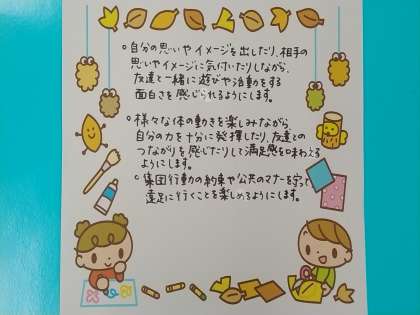 ○自分の思いやイメージを出したり、相手の
思いやイメージに気付いたりしながら、
友達と一緒に遊びや活動をする
面白さを感じられるようにします。
○様々な体の動きを楽しみながら
自分の力を十分に発揮したり、友達との
つながりを感じたりして満足感を味わえる
ようにします。
○集団行動の約束や公共のマナーを守って
遠足に行くことを楽しめるようにします。